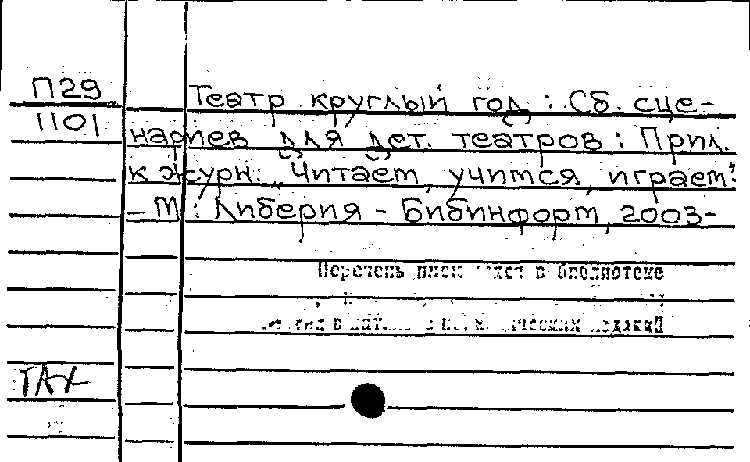 П29
1101
Театр круглый год : Сб. сце-
нариев для дет. театров : Прил.
к журн. "Читаем, учимся, играем".
- М : Либерия - Бибинформ, 2003-
Перечень в библиотеке
в